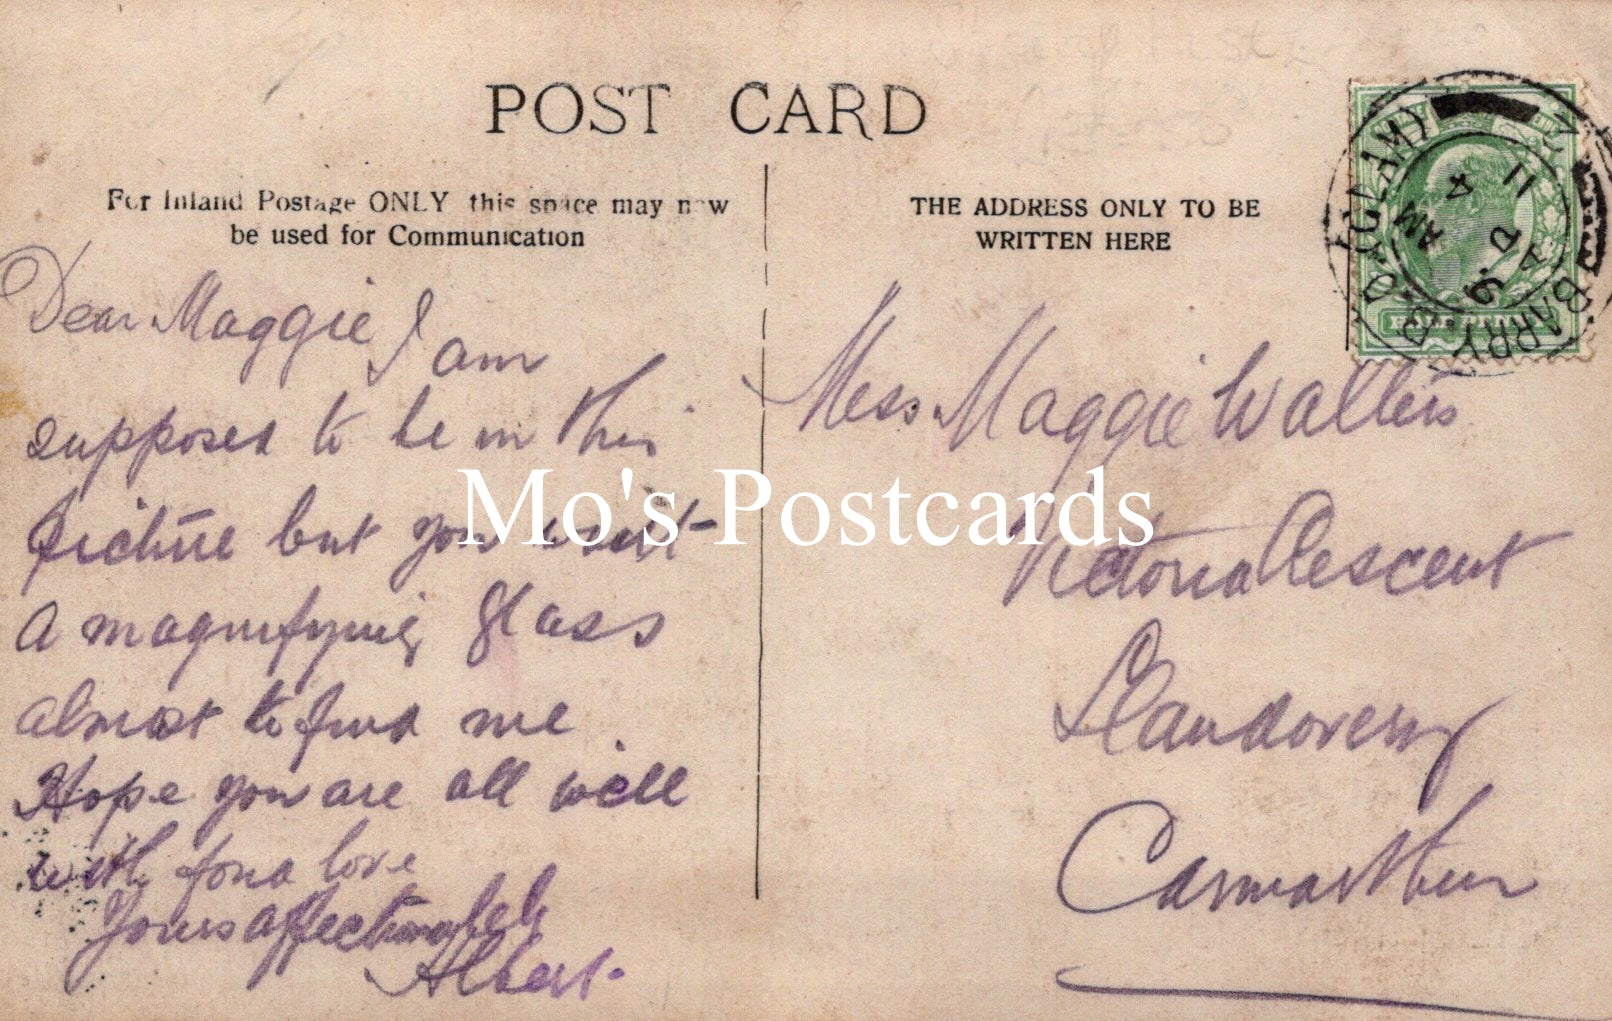 POST CARD
For Inland Postage ONLY this space may now
be used for Communication
THE ADDRESS ONLY TO BE
WRITTEN HERE
Dear Maggie I am
supposed to be in this
picture but you want
a magnifying glass
almost to find me.
Hope you are all well
with fond love
Yours affectionately
Albert.
Miss Maggie Walters
Victoria Crescent
Llandovery
Carmarthen
BARRY B.O (GLAM)
AM
4
11
HALF PENNY
Mo's Postcards